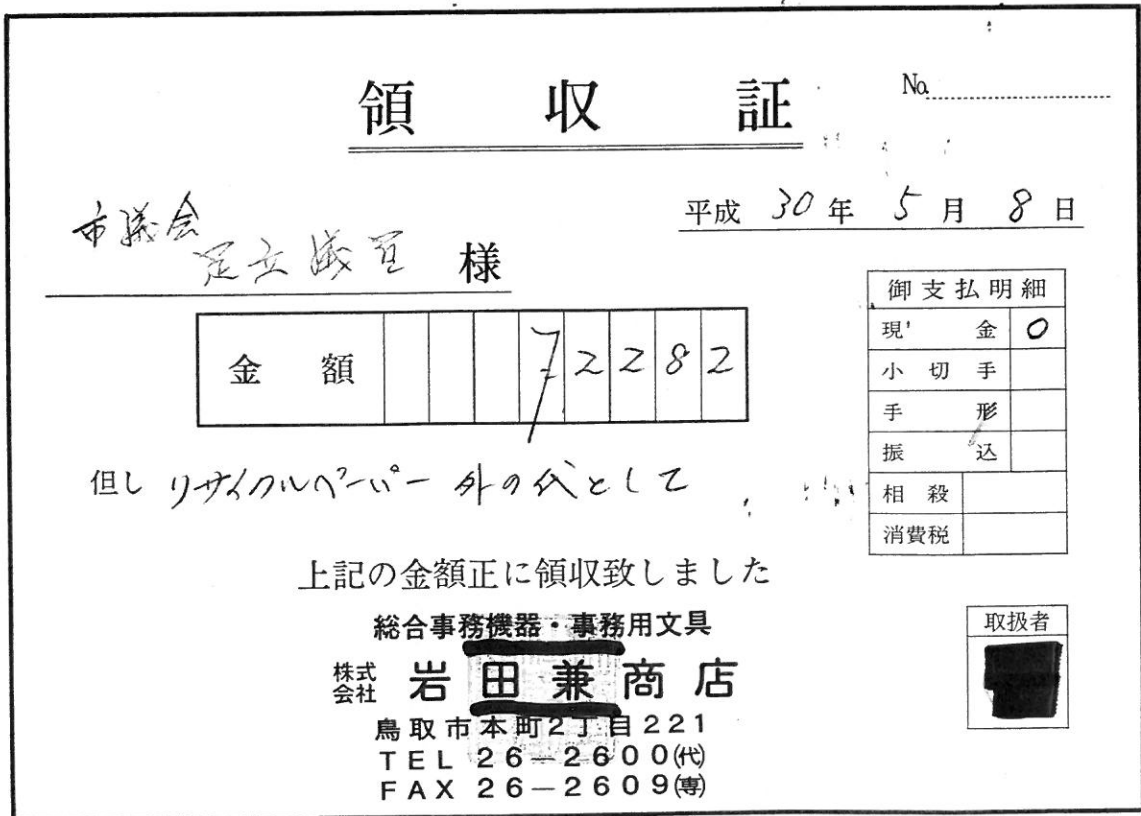 領収証
No.
平成 30年 5月 8日
市議会
足立議員 様
金額 72282
御支払明細
現金 ○
小切手
手形
振込
相殺
消費税
但し リサイクルペーパー 外の代として
上記の金額正に領収致しました
総合事務機器・事務用文具
株式会社 岩田兼商店
鳥取市本町2丁目221
TEL 26-2600(代)
FAX 26-2609(専)
取扱者